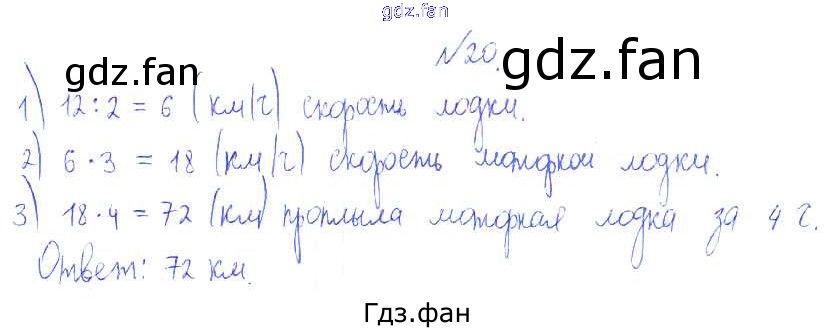 gdz.fan
№20.
gdz.fan
gdz.fan
1) 12:2 = 6 (км/ч) скорость лодки.
2) 6·3 = 18 (км/ч) скорость моторной лодки.
3) 18·4 = 72 (км) проплыла моторная лодка за 4 ч.
Ответ: 72 км.
Гдз.фан